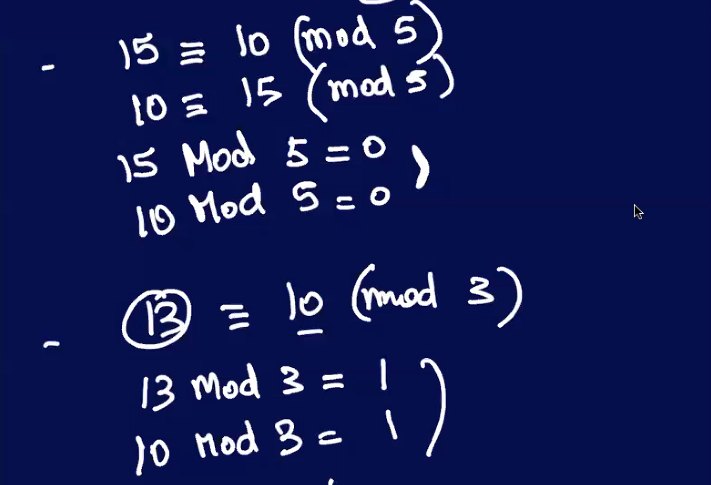 - 15 ≡ 10 (mod 5)
10 ≡ 15 (mod 5)
15 Mod 5 = 0
10 Mod 5 = 0
- 13 ≡ 10 (mod 3)
13 Mod 3 = 1
10 Mod 3 = 1